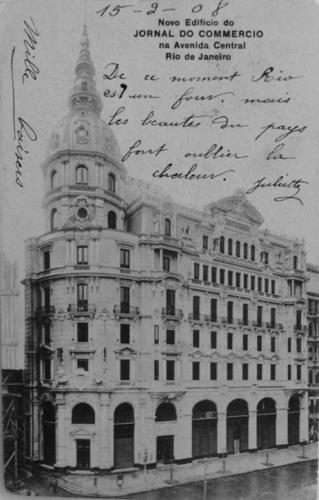 15-2-08
Novo Edificio do
JORNAL DO COMMERCIO
na Avenida Central
Rio de Janeiro
De ce moment Rio
est un four, mais
les beautés du pays
font oublier la
chaleur. Juliette
Mille baisers